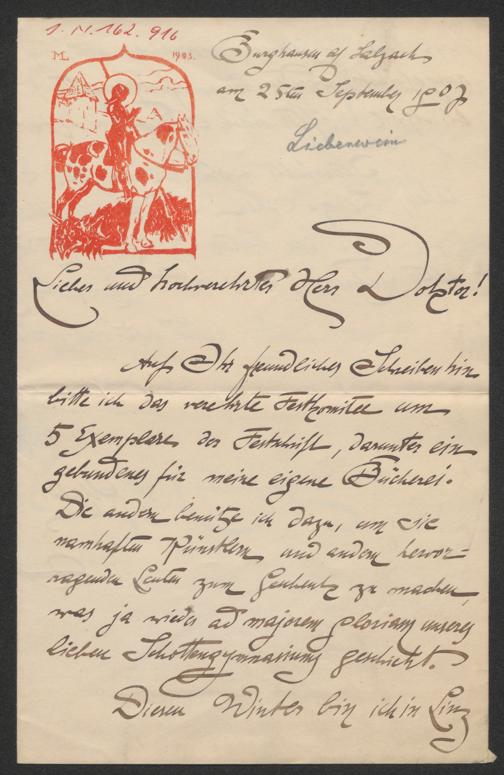 I. N. 162.916
ML 1903.
Burghausen a/ Salzach
am 25ten September 1907
Liebenwein
Lieber und hochverehrter Herr Doktor!
Auf Ihr freundliches Schreiben hin
bitte ich das verehrte Festkomitee um
5 Exemplare der Festschrift, darunter ein
gebundenes für meine eigene Bücherei.
Die andern benütze ich dazu, um sie
namhaften Künstlern und andern hervor=
ragenden Leuten zum Geschenk zu machen,
was ja wieder ad majorem gloriam unseres
lieben Schottengymnasiums geschieht.
Diesen Winter bin ich in Linz